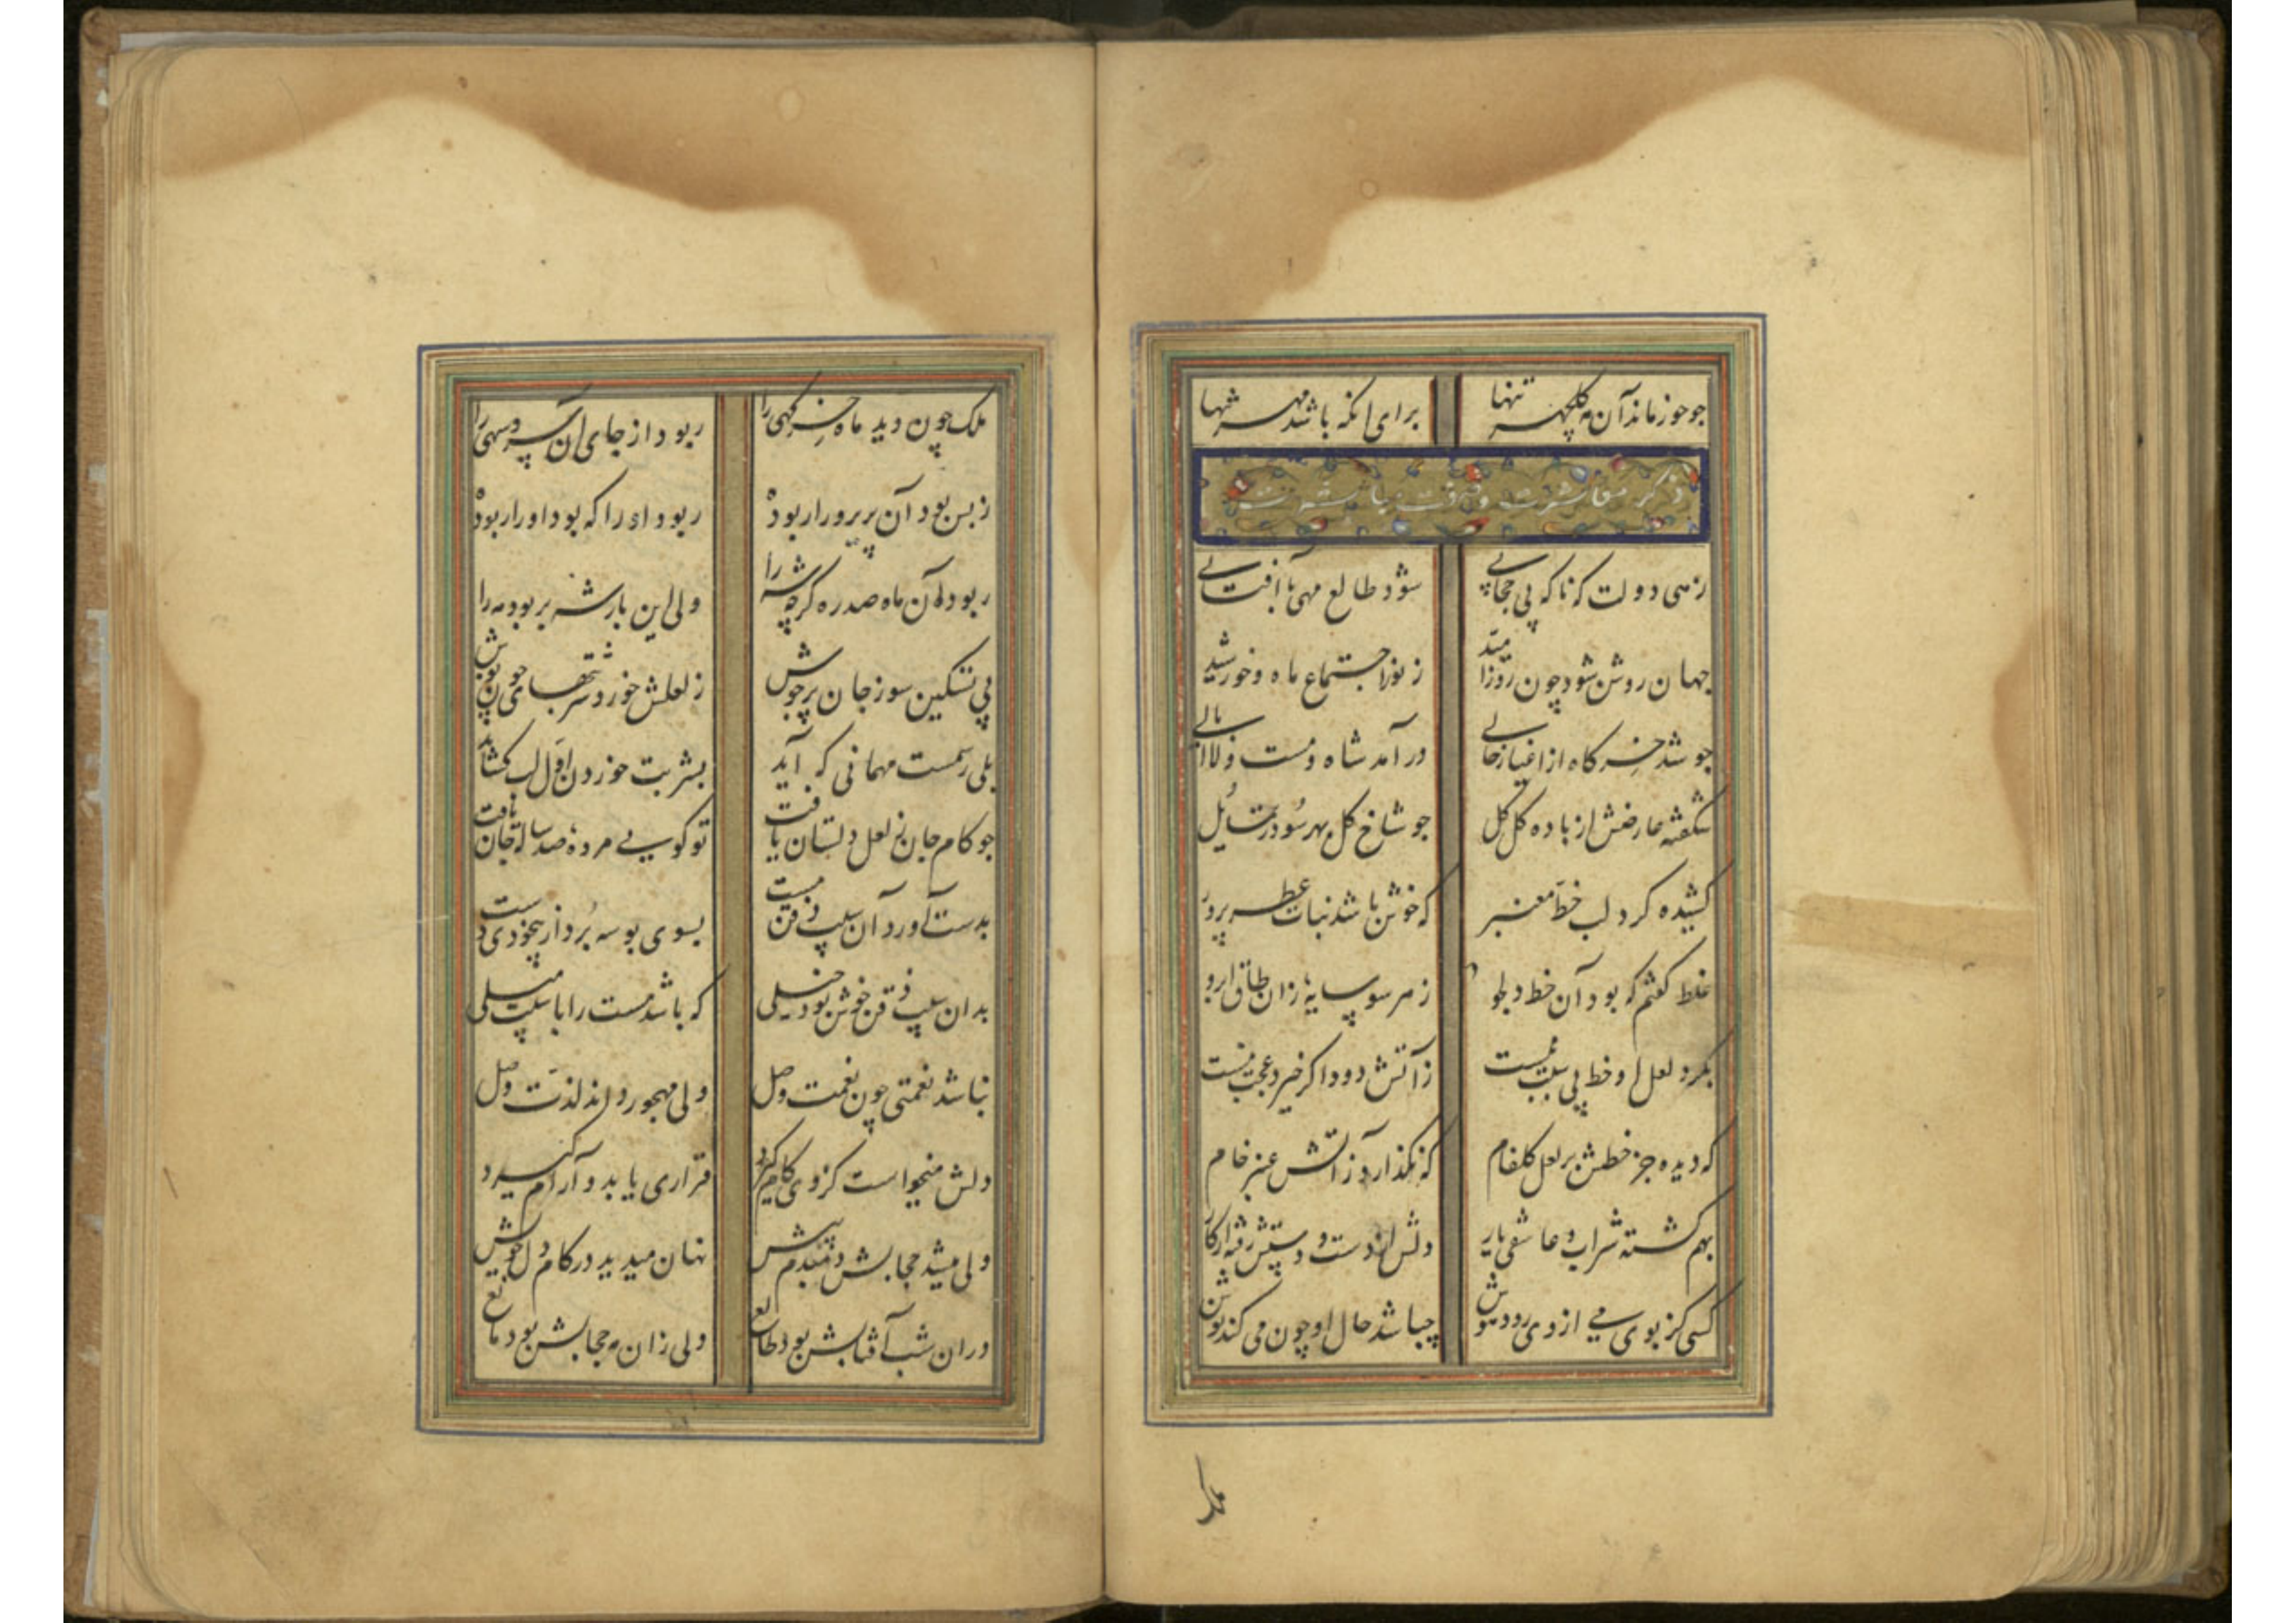 چو حور ماند آن مه گلچهر تنها برای آنکه باشد مهر شبها
ذکر معاشرت
زهی دولت که ناگه بی حجابی شود طالع مهی با آفتابی
جهان روشن شود چون روز امید ز نور اجتماع ماه و خورشید
جو شد خرکاه از اغیار خالی درآمد شاه مست و لاابالی
شکفته عارضش از باده کل کل جو شاخ کل بهر سو در تمایل
کشیده کرد لب خط معنبر که خوش باشد نبات عطر پرور
غلط کفتم که بود آن خط دلجو ز هر سو سایهٔ زان طاق ابرو
بکرد لعل او خط بی سبب نیست ز آتش دود اگر خیزد عجب نیست
که دیده جز خطش بر لعل کلفام که نکذارد ز آتش عنبر خام
بهم کشته شراب و عاشقی یار دلش از دست و دستش رفته از کار
کسی کز بوی می از وی رود هوش چباشد حال او چون می کند نوش
ملک
ملک چون دید ماه خرکهی را ربود از جای آن سرو سهی را
ز بس بود آن پریرو را ربوده ربود او را که بود او را ربوده
ربود آن ماه صد ره کرچه شه را ولی این بار شه بربود مه را
پی تسکین سوز جان پرجوش ز لعلش خورد شربتهای چون نوش
بلی رسمست مهمانی که آید بشربت خوردن اول لب کشاید
جو کام جان ز لعل دلستان یافت تو کویی مردهٔ صد ساله جان یافت
بدست آورد آن سیب ذقن مست بسوی بوسه برد از بیخودی دست
بدان سیب ذقن خوش بود خیلی که باشد مست را با سیب میلی
نباشد نعمتی چون نعمت وصل ولی مهجور داند لذت وصل
دلش میخواست کز وی کام گیرد قراری یابد و آرام گیرد
ولی میشد حجابش دمبدم پیش نهان میدید در کام دل خویش
دران شب آفتابش بود طالع ولی زان مه حجابش بود مانع